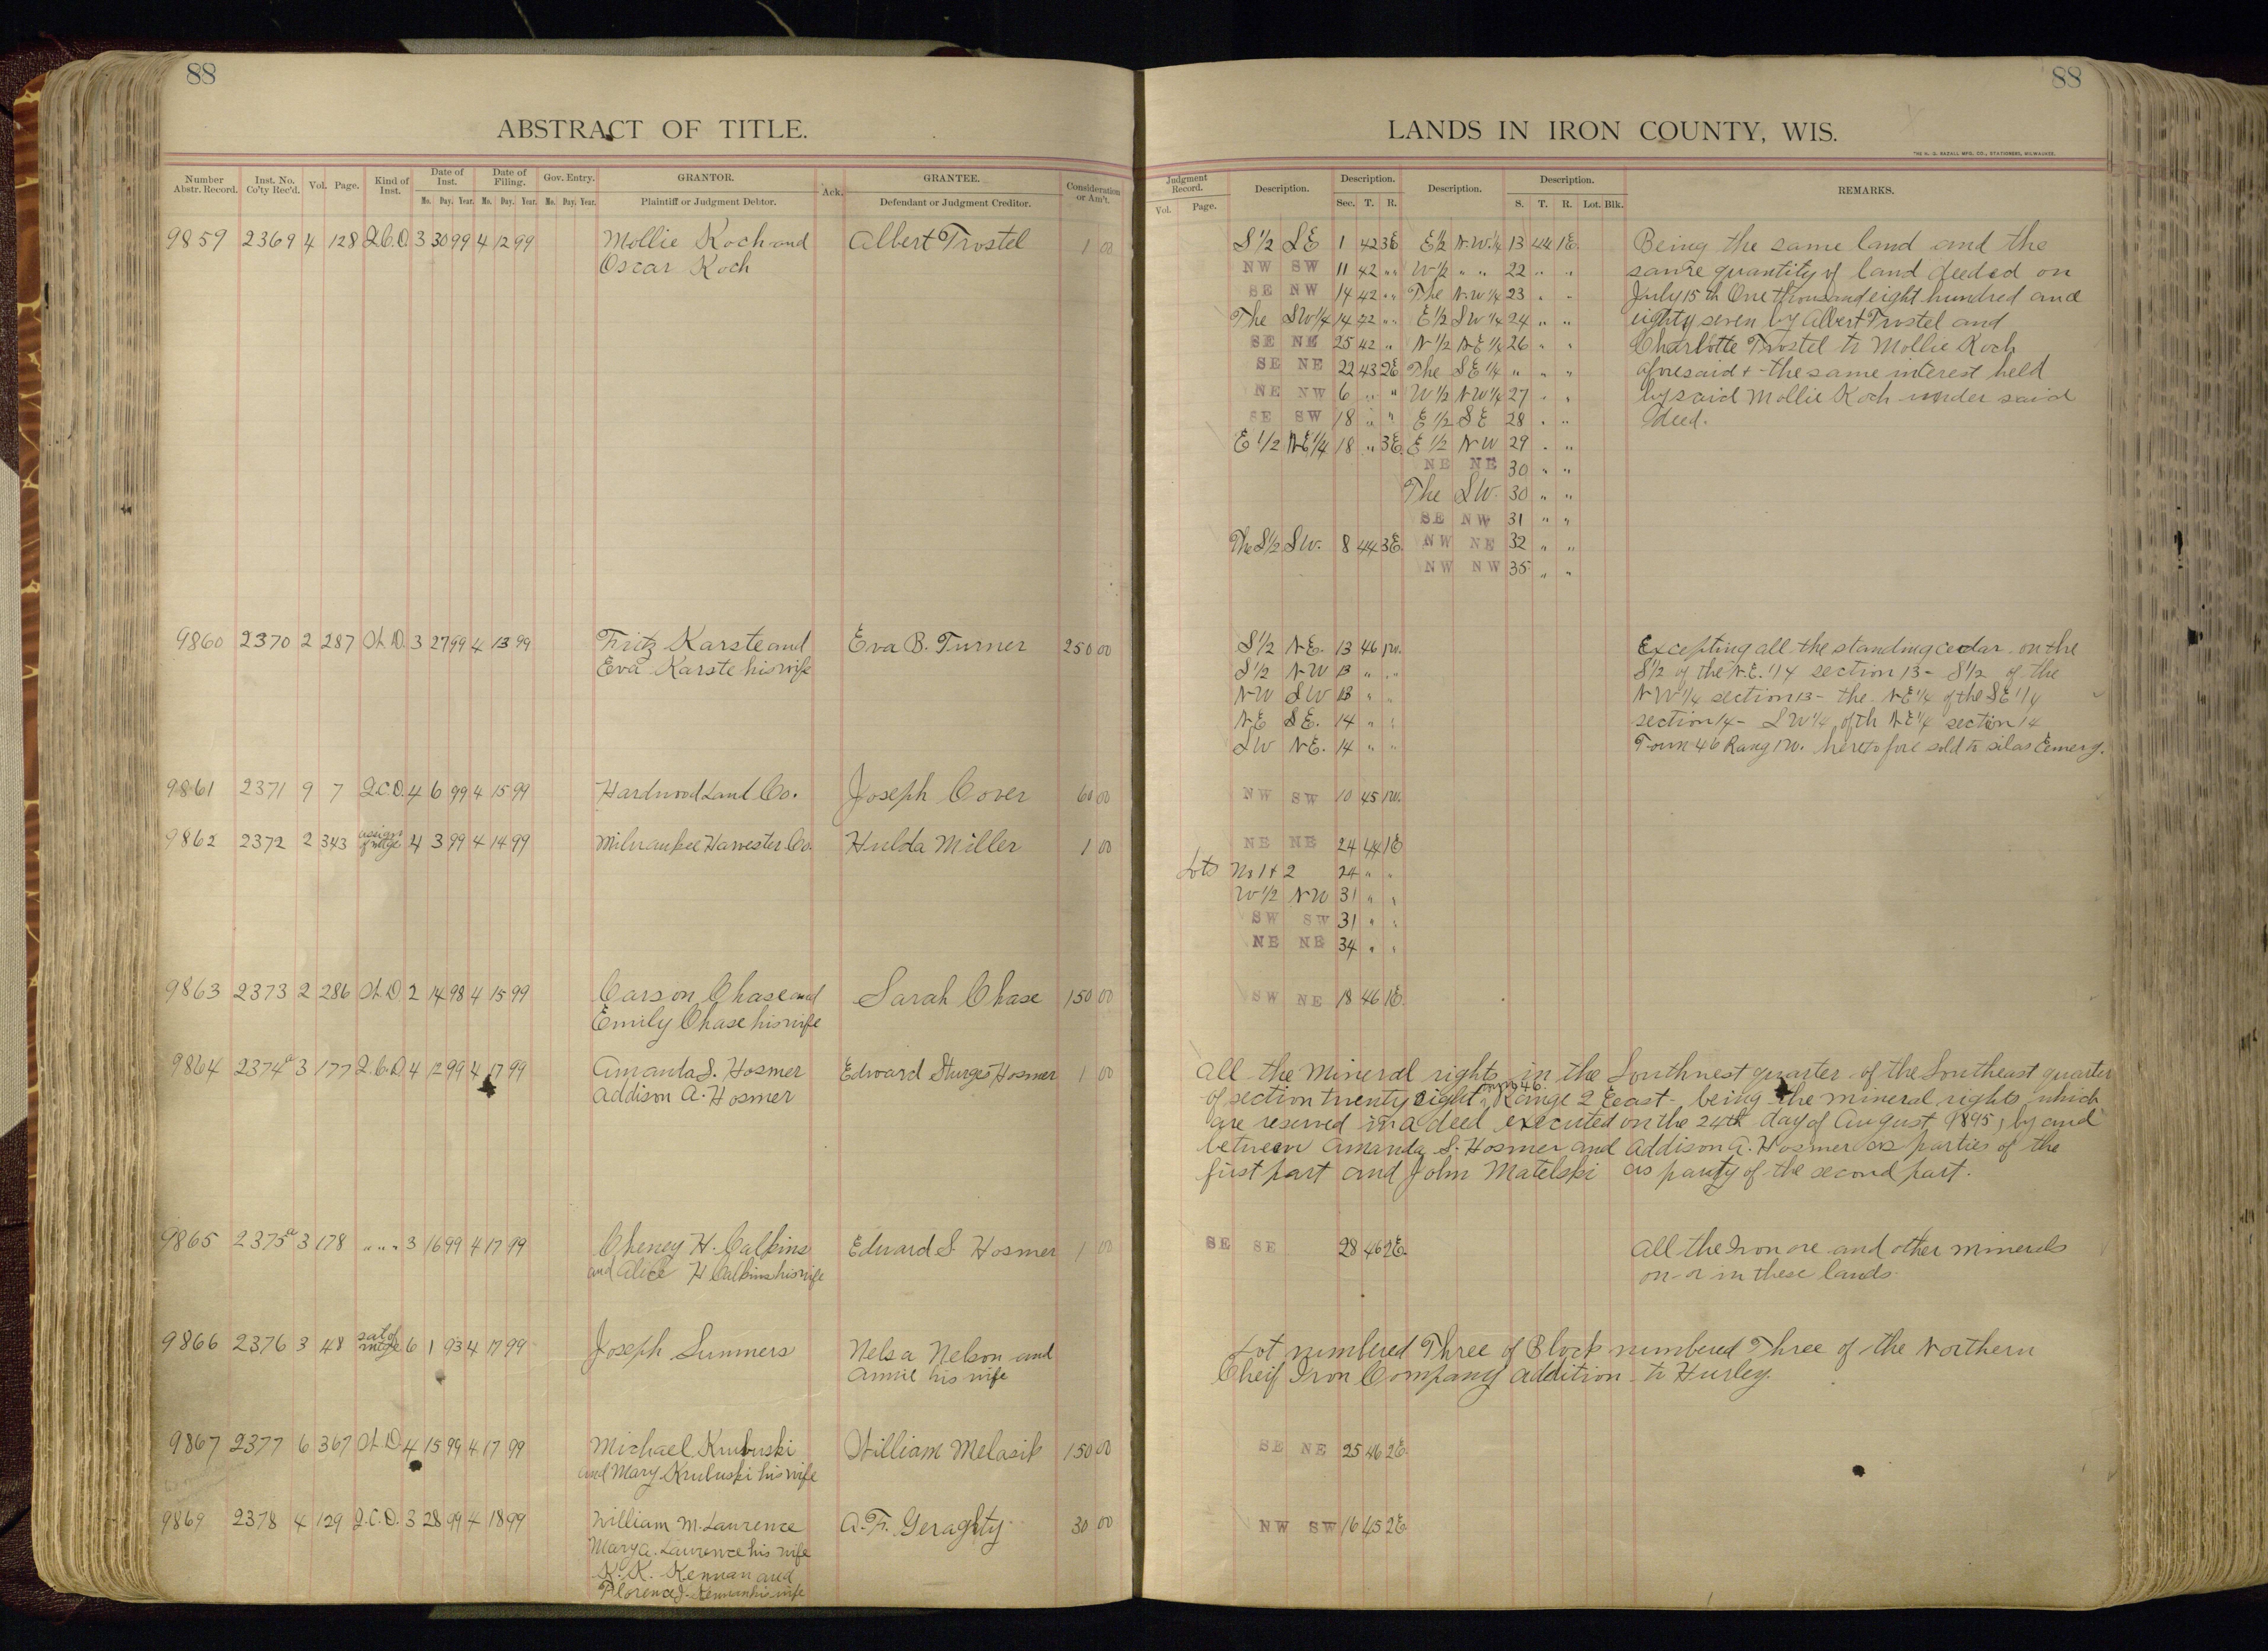 88
ABSTRACT OF TITLE.
Number Abstr. Record. Inst. No. Co'ty Rec'd. Vol. Page. Kind of Inst. Date of Inst. Mo. Day. Year. Date of Filing. Mo. Day. Year. Gov. Entry. Mo. Day. Year. GRANTOR. Plaintiff or Judgment Debtor. Ack. GRANTEE. Defendant or Judgment Creditor. Consideration or Am't.
9859 2369 4 128 Q.C.D 3 30 99 4 12 99 Mollie Koch and Albert Trostel 1 00
Oscar Koch
9860 2370 2 287 W.D. 3 27 99 4 13 99 Fritz Karste and Eva B. Turner 250 00
Eva Karste his wife
9861 2371 9 7 Q.C.D. 4 6 99 4 15 99 Hardwood Land Co. Joseph Cover 60 00
9862 2372 2 343 assign of mtge 4 3 99 4 14 99 Milwaukee Harvester Co. Hulda Miller 1 00
9863 2373 2 286 W.D 2 14 98 4 15 99 Carson Chase and Sarah Chase 150 00
Emily Chase his wife
9864 2374a 3 177 Q.C.D 4 12 99 4 17 99 Amanda S. Hosmer Edward Sturges Hosmer 1 00
Addison A. Hosmer
9865 2375a 3 178 " " " 3 16 99 4 17 99 Cheney H. Calkins Edward S Hosmer 1 00
and Alice H Calkins his wife
9866 2376 3 48 sat of mtge 6 1 93 4 17 99 Joseph Summers Nels a Nelson and
Annie his wife
9867 2377 6 367 W.D 4 15 99 4 17 99 Michael Krubuski William Melasik 150 00
and Mary Krubuski his wife
9869 2378 4 129 Q.C.D. 3 28 99 4 18 99 William M. Lawrence A.F. Geraghty 30 00
Mary A. Lawrence his wife
K. K. Kennan and
Florence J. Kennan his wife
88
LANDS IN IRON COUNTY, WIS.
THE H. G. RAZALL MFG. CO., STATIONERS, MILWAUKEE.
Judgment Record. Vol. Page. Description. Description. Sec. T. R. Description. Description. S. T. R. Lot. Blk. REMARKS.
S 1/2 SE 1 42 3E E 1/2 N.W. 1/4 13 44 1E Being the same land and the
NW SW 11 42 " " W 1/2 " " 22 " " same quantity of land deeded on
SE NW 14 42 " " The N.W 1/4 23 " " July 15th One thousand eight hundred and
The SW 1/4 14 42 " " E 1/2 SW 1/4 24 " " eighty seven by Albert Trostel and
SE NE 25 42 " N 1/2 NE 1/4 26 " " Charlotte Trostel to Mollie Koch
SE NE 22 43 2E The SE 1/4 " " " aforesaid + the same interest held
NE NW 6 " " W 1/2 NW 1/4 27 " " by said Mollie Koch under said
SE SW 18 " " E 1/2 SE 28 " " deed.
E 1/2 NE 1/4 18 " 3E E 1/2 NW 29 " "
NE NE 30 " "
The SW. 30 " "
SE NW 31 " "
The S 1/2 SW. 8 44 3E. NW NE 32 " "
NW NW 35 " "
S 1/2 NE. 13 46 1W. Excepting all the standing cedar on the
S 1/2 NW 13 " " S 1/2 of the N.E. 1/4 section 13 - S 1/2 of the
NW SW 13 " " NW 1/4 section 13 - the NE 1/4 of the SE 1/4
NE SE. 14 " " section 14 - SW 1/4 of th NE 1/4 section 14
SW NE. 14 " " Town 46 Rang 1W. heretofore sold to silas Emery.
NW SW 10 45 1W.
NE NE 24 44 1E
Lots No 1 + 2 24 " "
W 1/2 NW 31 " "
SW SW 31 " "
NE NE 34 " "
SW NE 18 46 1E.
All the mineral rights in the Southwest quarter of the Southeast quarter
of section twenty eight, Town 46 Range 2 Eeast - being the mineral rights which
are reserved in a deed executed on the 24th day of August 1895, by and
between Amanda S. Hosmer and Addison A. Hosmer as parties of the
first part and John Matelski as party of the second part.
SE SE 28 46 2E. All the Iron ore and other minerals
on or in these lands
Lot numbered Three of Block numbered Three of the Northern
Cheif Iron Company addition to Hurley.
SE NE 25 46 2E.
NW SW 16 45 2E.